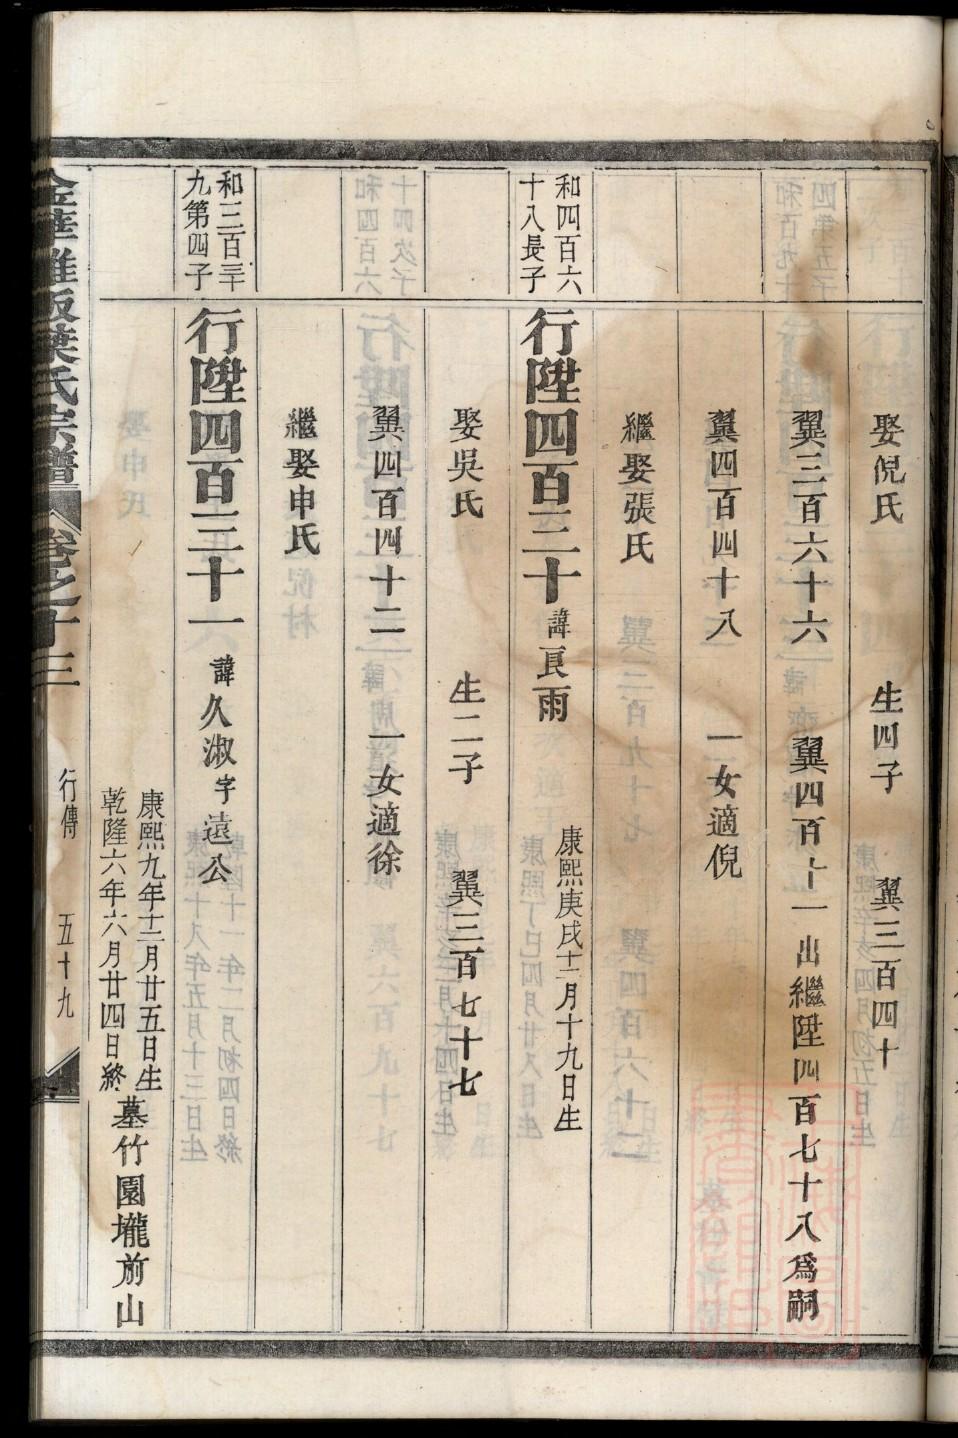 娶倪氏　生四子　翼三百四十
翼三百六十六　翼四百十一　出繼陞四百七十八爲嗣
翼四百四十八　一女適倪
繼娶張氏
和四百六
十八長子
行陞四百三十　諱良雨　康熙庚戌十二月十九日生
娶吳氏　生二子　翼三百七十七
翼四百四十二　一女適徐
繼娶申氏
和三百三十
九第四子
行陞四百三十一　諱久淑　字遠公
康熙九年十二月廿五日生
乾隆六年六月廿四日終
墓竹園壠前山
葉氏宗譜　卷之十三　行傳　五十九